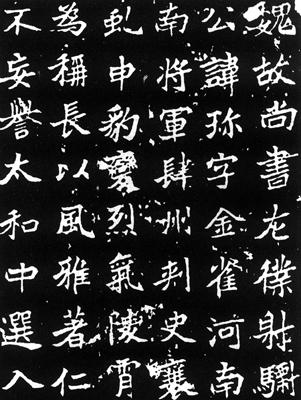 魏故尚書左僕射驃
公諱珍字金雀河南
南將軍肆州刾史襄
虬申豹變烈氣陵霄
為稱長以風雅著仁
不妄譽太和中選入